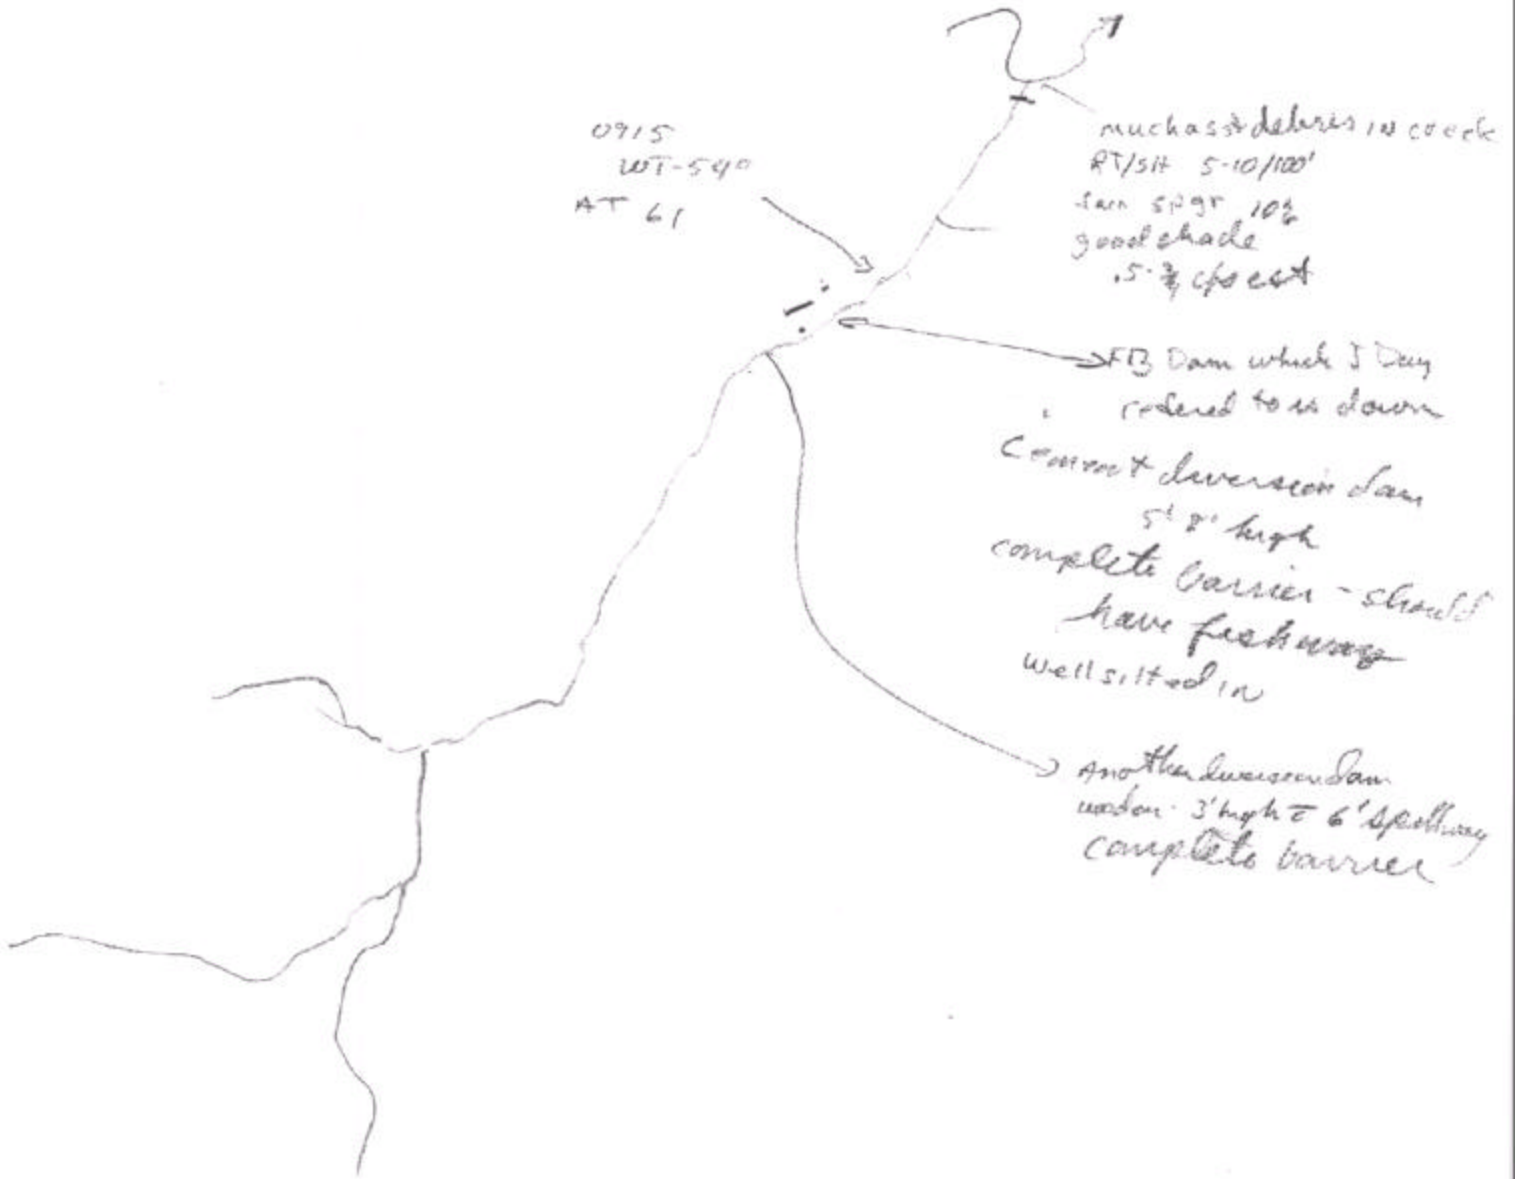 0915
WT-54°
AT 61
much asst debris in creek
RT/SH 5-10/100'
spgr 10%
good shade
.5- cfs est
FB Dam which J Day
refered to is down
Cement diversion dam
5' 8" high
complete barrier - should
have fishway
well silted in
Another diversion dam
wooden - 3' high c̄ 6' spillway
complete barrier